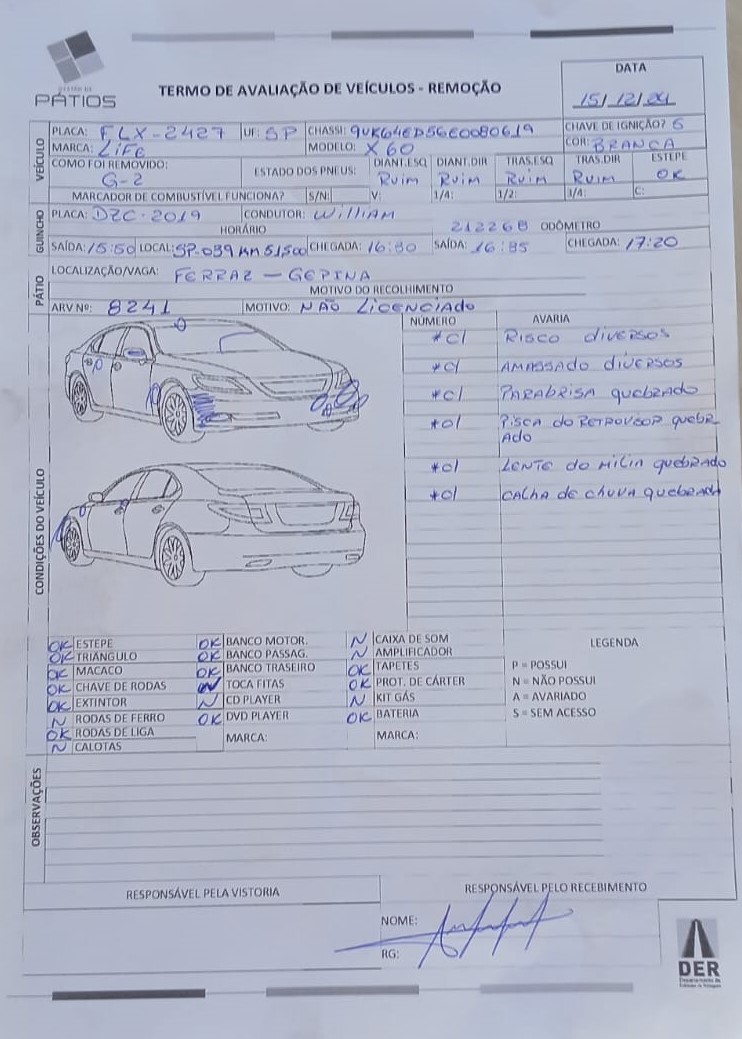 GESTÃO DE
PÁTIOS
TERMO DE AVALIAÇÃO DE VEÍCULOS - REMOÇÃO
DATA
15/12/24
VEÍCULO
PLACA: FLX-2427 UF: SP CHASSI: 9UK64ED56E0080619 CHAVE DE IGNIÇÃO? S
MARCA: LIFE MODELO: X 60 COR: BRANCA
COMO FOI REMOVIDO: G-2 ESTADO DOS PNEUS: DIANT.ESQ DIANT.DIR TRAS.ESQ TRAS.DIR ESTEPE
RUIM RUIM RUIM RUIM OK
MARCADOR DE COMBUSTÍVEL FUNCIONA? S/N: V: 1/4: 1/2: 3/4: C:
GUINCHO
PLACA: DZC-2019 CONDUTOR: WILLIAM
HORÁRIO 212268 ODÔMETRO
SAÍDA: 15:50 LOCAL: SP.039 KM 51,500 CHEGADA: 16:30 SAÍDA: 16:35 CHEGADA: 17:20
PÁTIO
LOCALIZAÇÃO/VAGA: FERRAZ - GEPINA
MOTIVO DO RECOLHIMENTO
ARV Nº: 8241 MOTIVO: NÃO LICENCIADO
CONDIÇÕES DO VEÍCULO
NÚMERO AVARIA
*C/ RISCO DIVERSOS
*C/ AMASSADO DIVERSOS
*C/ PARABRISA QUEBRADO
*C/ PISCA DO RETROVISOR QUEBR
ADO
*C/ LENTE DO MILIA QUEBRADO
*C/ CALHA DE CHUVA QUEBRADA
OK ESTEPE OK BANCO MOTOR. N CAIXA DE SOM LEGENDA
OK TRIÂNGULO OK BANCO PASSAG. N AMPLIFICADOR
OK MACACO OK BANCO TRASEIRO OK TAPETES P = POSSUI
OK CHAVE DE RODAS N TOCA FITAS OK PROT. DE CÁRTER N = NÃO POSSUI
OK EXTINTOR N CD PLAYER N KIT GÁS A = AVARIADO
N RODAS DE FERRO OK DVD PLAYER OK BATERIA S = SEM ACESSO
OK RODAS DE LIGA MARCA: MARCA:
N CALOTAS
OBSERVAÇÕES
RESPONSÁVEL PELA VISTORIA RESPONSÁVEL PELO RECEBIMENTO
NOME:
RG:
DER